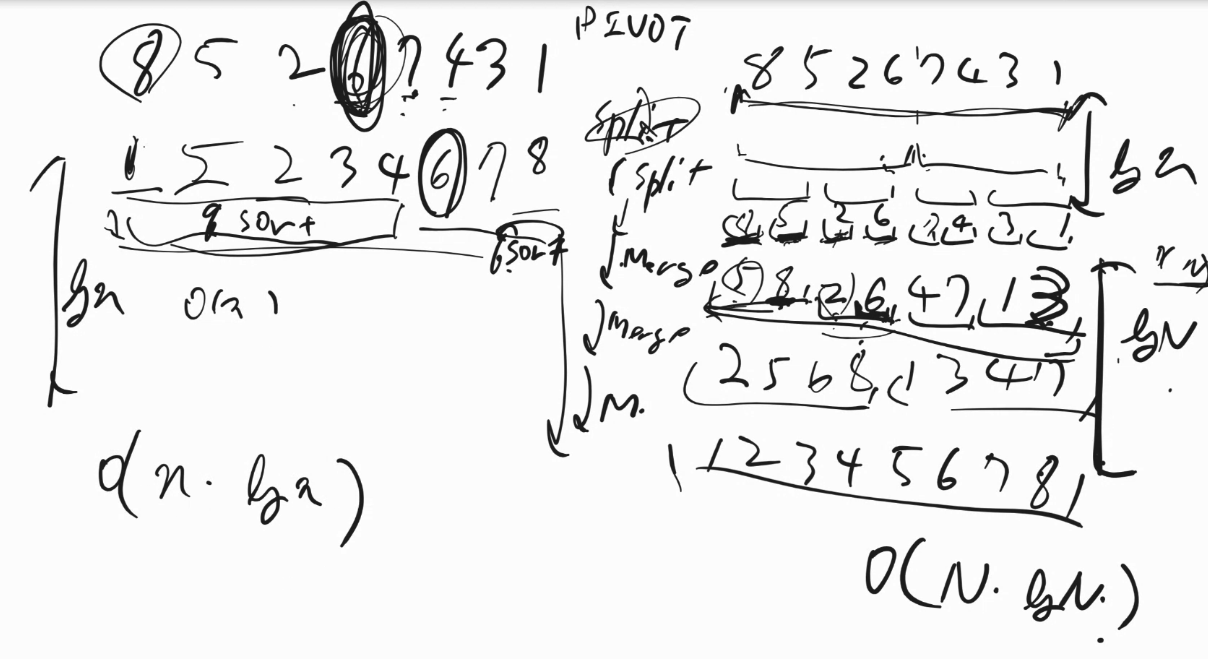 8 5 2 6 7 4 3 1
1 5 2 3 4 6 7 8
q sort
q sort
lg n
O(n)
O(n · lg n)
PIVOT
8 5 2 6 7 4 3 1
split
split
lg n
8 5 2 6 7 4 3 1
merge
5 8 2 6 4 7 1 3
merge
lg N
2 5 6 8 1 3 4 7
M.
1 2 3 4 5 6 7 8
O(N. lg N.)